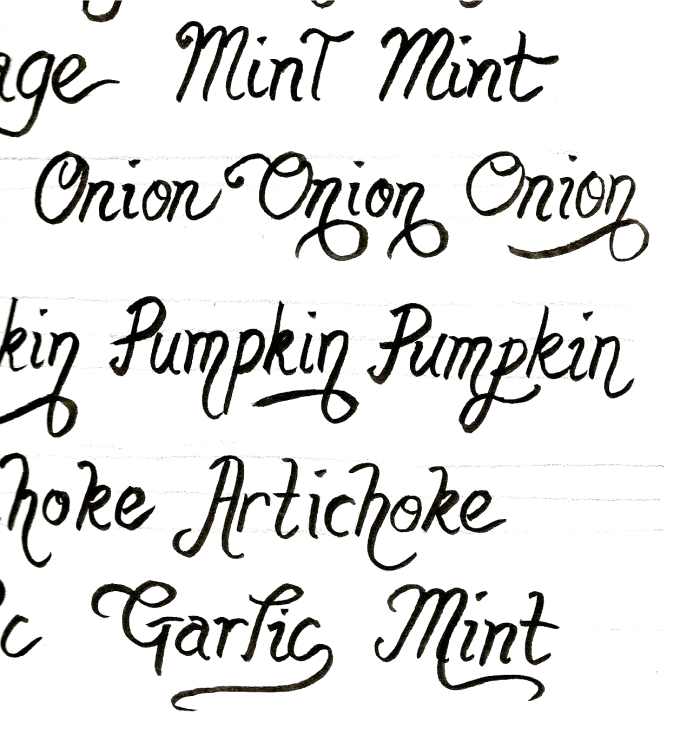 age MinT Mint
Onion Onion Onion
kin Pumpkin Pumpkin
hoke Artichoke
c Garlic Mint